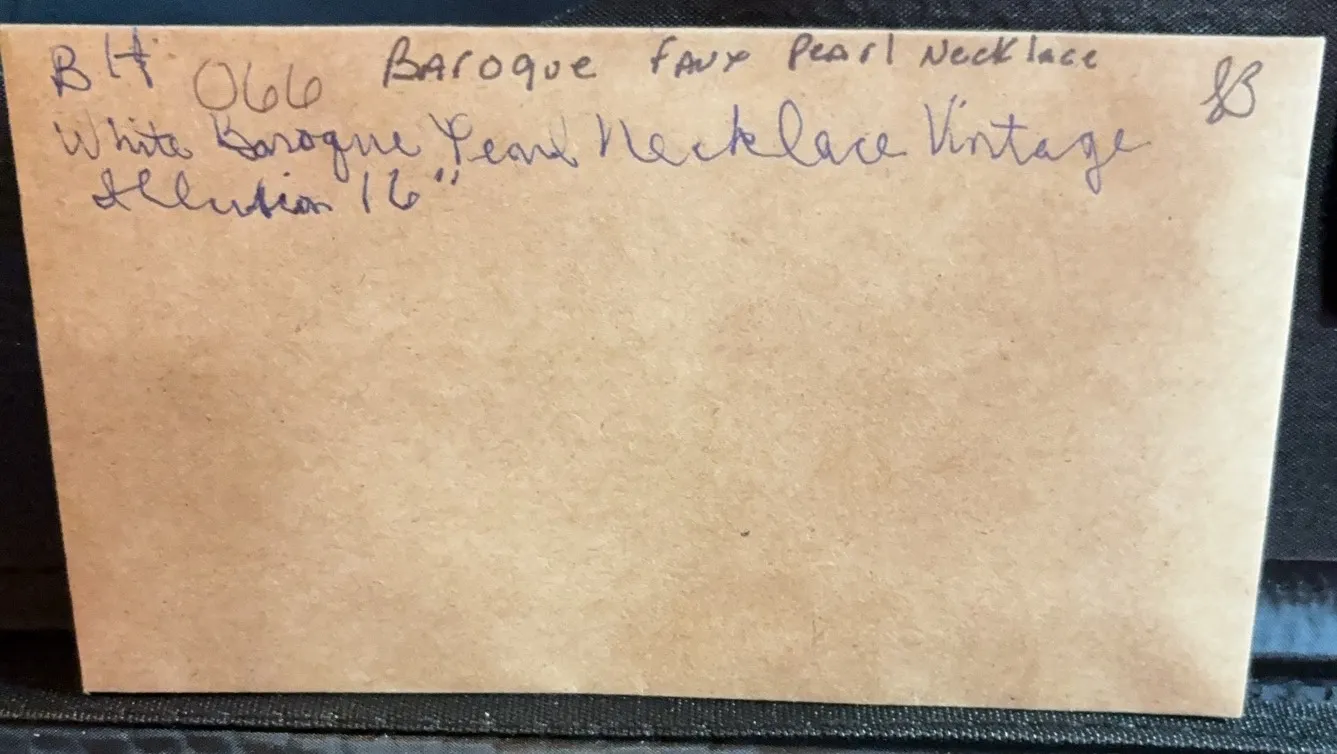 066 Baroque Faux Pearl Necklace
White Baroque Pearl Necklace Vintage
Illusion 16"